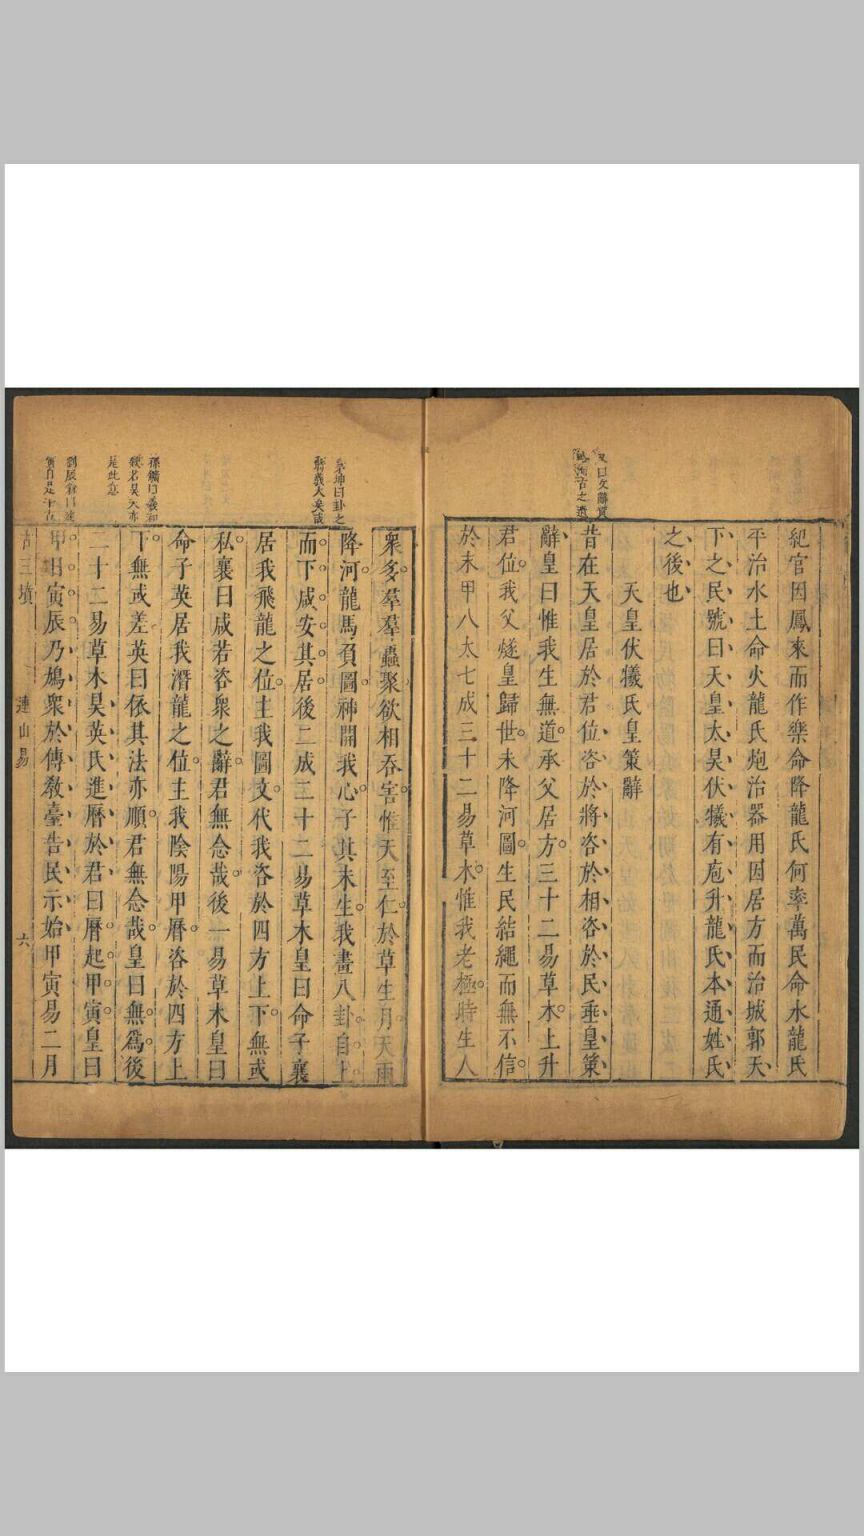 紀官因鳳來而作樂命降龍氏何率萬民命水龍氏
平治水土命火龍氏炮治器用因居方而治城郭天
下之民號曰天皇太昊伏犧有庖升龍氏本通姓氏
之後也
天皇伏犧氏皇策辭
昔在天皇居於君位咨於將咨於相咨於民垂皇策
辭皇曰惟我生無道承父居方三十二易草木上升
君位我父燧皇歸世未降河圖生民結繩而無不信
於末甲八太七成三十二易草木惟我老極時生人
衆多羣羣蟲聚欲相吞害惟天至仁於草生月天雨
降河龍馬負圖神開我心子其未生我畫八卦自上
而下咸安其居後二成二十二易草木皇曰命子襄
居我飛龍之位主我圖文代我咨於四方上下無或
私襄曰咸若咨衆之辭君無念哉後一易草木皇曰
命子英居我潛龍之位主我陰陽甲曆咨於四方上
下無或差英曰依其法亦順君無念哉皇曰無爲後
二十二易草木昊英氏進曆於君曰曆起甲寅皇曰
甲日寅辰乃鳩衆於傳敎臺告民示始甲寅易二月
古三墳 連山易 六
曰文辭
古之遺
坤曰卦之
義大矣哉
孫鑛曰
敘名昊天亦
是此意
劉辰翁曰